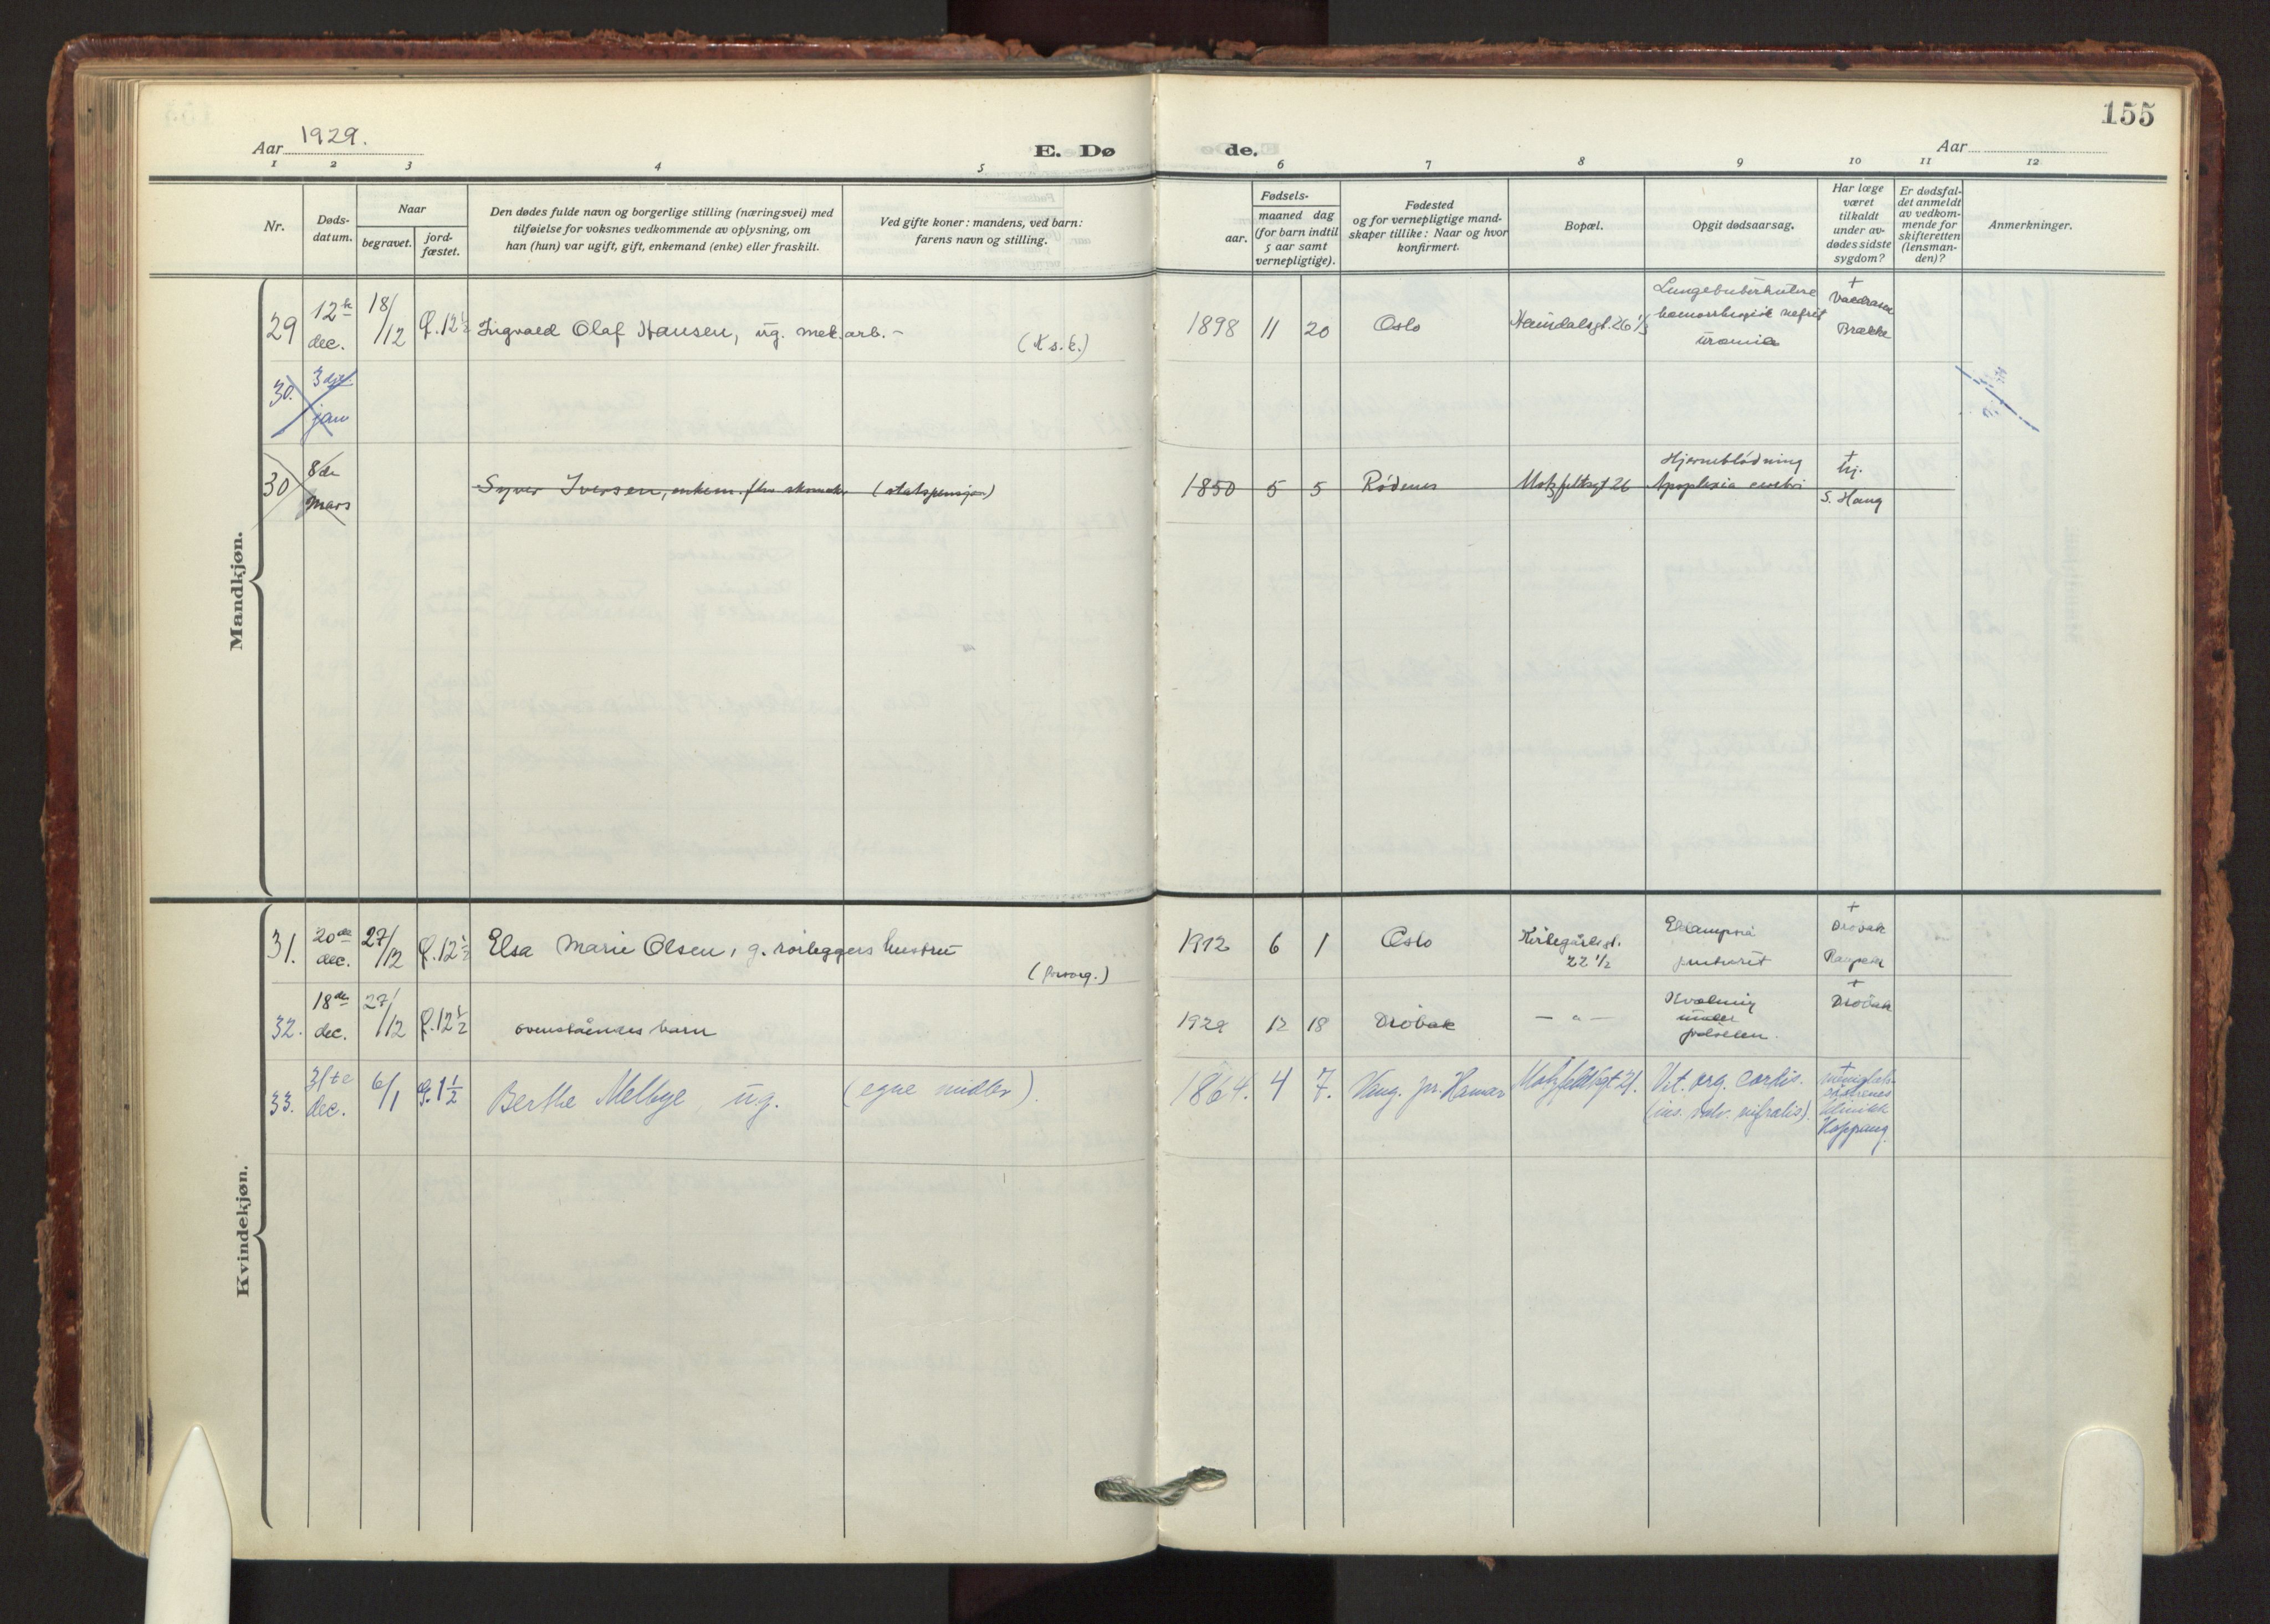 155
Aar 1929.
E. Dø de.
Aar
1 2 3 4 5 6 7 8 9 10 11 12
Nr.
Døds-
datum.
Naar
begravet.
jord-
fæstet.
Den dødes fulde navn og borgerlige stilling (næringsvei) med
tilføielse for voksnes vedkommende av oplysning, om
han (hun) var ugift, gift, enkemand (enke) eller fraskilt.
Ved gifte koner: mandens, ved barn:
farens navn og stilling.
Fødsels-
aar.
maaned dag
(for barn indtil
5 aar samt
vernepligtige).
Fødested
og for vernepligtige mand-
skaper tillike: Naar og hvor
konfirmert.
Bopæl.
Opgit dødsaarsag.
Har læge
været
tilkaldt
under av-
dødes sidste
sygdom?
Er dødsfal-
det anmeldt
av vedkom-
mende for
skifteretten
(lensman-
den)?
Anmerkninger.
Mandkjøn.
29 12te dec. 18/12 Q. 12½ Ingvald Olaf Hansen, ug. mek. arb. - (K s. k.) 1898 11 20 Oslo Heimdalsgt. 26 Lungetuberkulose
uræmia
+
Brække
30. 3dje jan
30 8de Mars Syver Iversen, enkem. fhv skomak. (statspensjon) 1850 5 5 Rødenes Motzfeldtsgt 26 Hjerneblødning
Apoplexia cerebri
+
hj.
S. Haug
Kvindekjøn.
31. 20de dec. 27/12 Q. 12½ Elsa Marie Olsen, g. rørleggers hustru (forsorg.) 1912 6 1 Oslo Kirkegårdsgt.
22 ½
Eklampsia
+
Drøbak
32. 18de dec. 27/12 Q. 12½ ovenståendes barn 1929 12 18 Drøbak - " - Kvælning
under
fødselen.
+
Drøbak
33. 31te dec. 6/1 G. 1½ Berthe Melbye ug. (egne midler). 1864. 4 7. Vang pr. Hamar Motzfeldtsgt 21. Vit. org. cordis.
(ins. valv. mitralis).
+
menighets-
søstrenes
klinikk
Koppang.